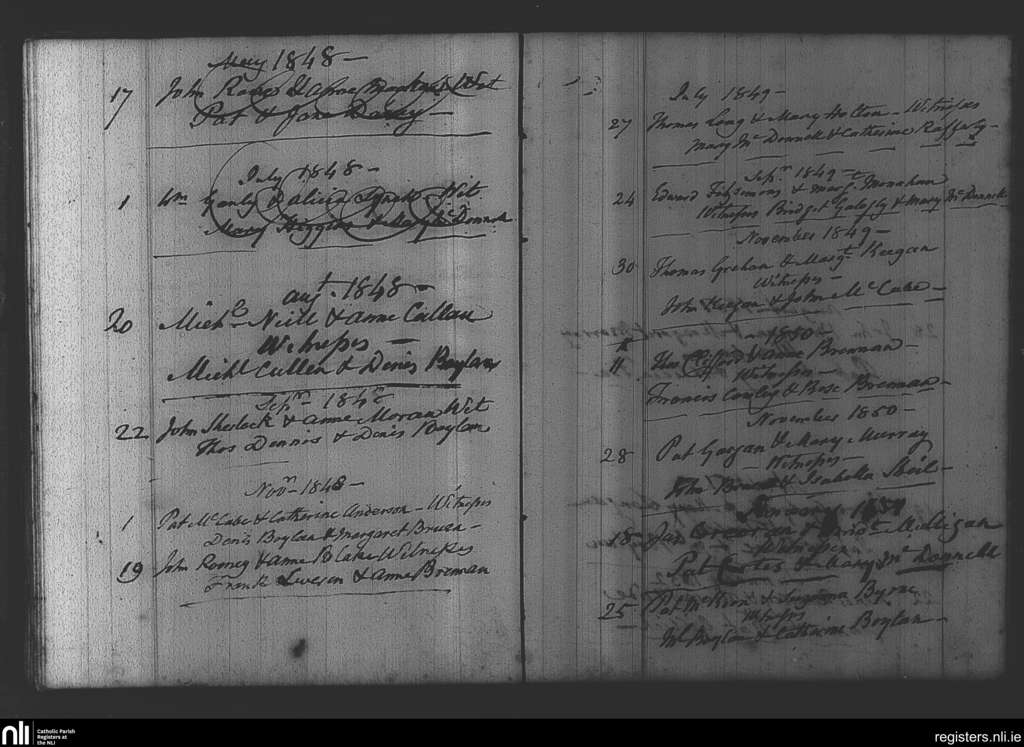 May 1848 —
17 John & Wit
Pat & Jane Darby —
July 1848 —
1 Wm & Alicia Lynch Wit
Mary Higgins & Mary McDonnell
Augt. 1848 —
20 Michl Neill & Anne Cullan
Witnesses —
Michl Cullen & Denis Boylan
Sepr
22 John Sherlock & Anne Moran Wit
Thos Dennis & Denis Boylan
Novr 1848 —
1 Pat McCabe & Catherine Anderson — Witnesses
Denis Boylan & Margaret Bruen —
19 John Rooney & Anne Blake Witnesses
Frank & Anne Brennan
July 1849 —
27 Thomas Long & Mary Holton — Witnesses
Mary McDonnell & Catherine Rafferty —
Sepr 1849 —
24 Edward Fitzsimons & Margt Monahan
Witnesses Bridget & Mary McDonnell
November 1849 —
30 Thomas Grehan & Margt Keegan
Witnesses —
John Keegan & John McCabe —
1850 —
11 Thos & Anne Brennan —
Witnesses —
Francis & Rose Brennan —
November 1850 —
28 Pat Gargan & Mary Murray
Witnesses —
John & Isabella Sheil —
January 1851
18 Jas Corcoran & Mulligan
Witnesses
Pat & Mary McDonnell
25 Pat & Byrne
Witnesses
Ml Boylan & Catherine Boylan —
nli
Catholic Parish
Registers at
the NLI
registers.nli.ie